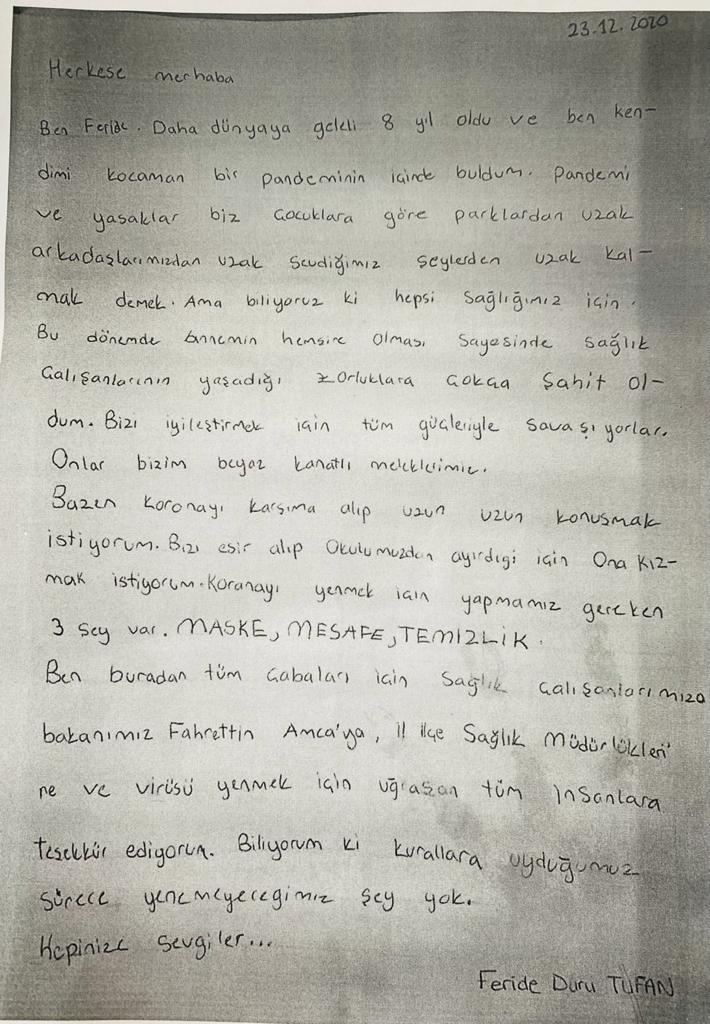 23.12.2020
Herkese merhaba
Ben Feride. Daha dünyaya geleli 8 yıl oldu ve ben ken-
dimi kocaman bir pandeminin içinde buldum. Pandemi
ve yasaklar biz çocuklara göre parklardan uzak
arkadaşlarımızdan uzak sevdiğimiz şeylerden uzak kal-
mak demek. Ama biliyoruz ki hepsi sağlığımız için.
Bu dönemde annemin hemşire olması sayesinde sağlık
çalışanlarının yaşadığı zorluklara çokça şahit ol-
dum. Bizi iyileştirmek için tüm güçleriyle savaşıyorlar.
Onlar bizim beyaz kanatlı meleklerimiz.
Bazen koronayı karşıma alıp uzun uzun konuşmak
istiyorum. Bizi esir alıp okulumuzdan ayırdığı için ona kız-
mak istiyorum. Koranayı yenmek için yapmamız gereken
3 şey var. MASKE, MESAFE, TEMİZLİK.
Ben buradan tüm çabaları için sağlık çalışanlarımıza
bakanımız Fahrettin Amca'ya, il ilçe Sağlık Müdürlükleri'
ne ve virüsü yenmek için uğraşan tüm insanlara
teşekkür ediyorum. Biliyorum ki kurallara uyduğumuz
sürece yenemeyeceğimiz şey yok.
Hepinize sevgiler...
Feride Duru TUFAN